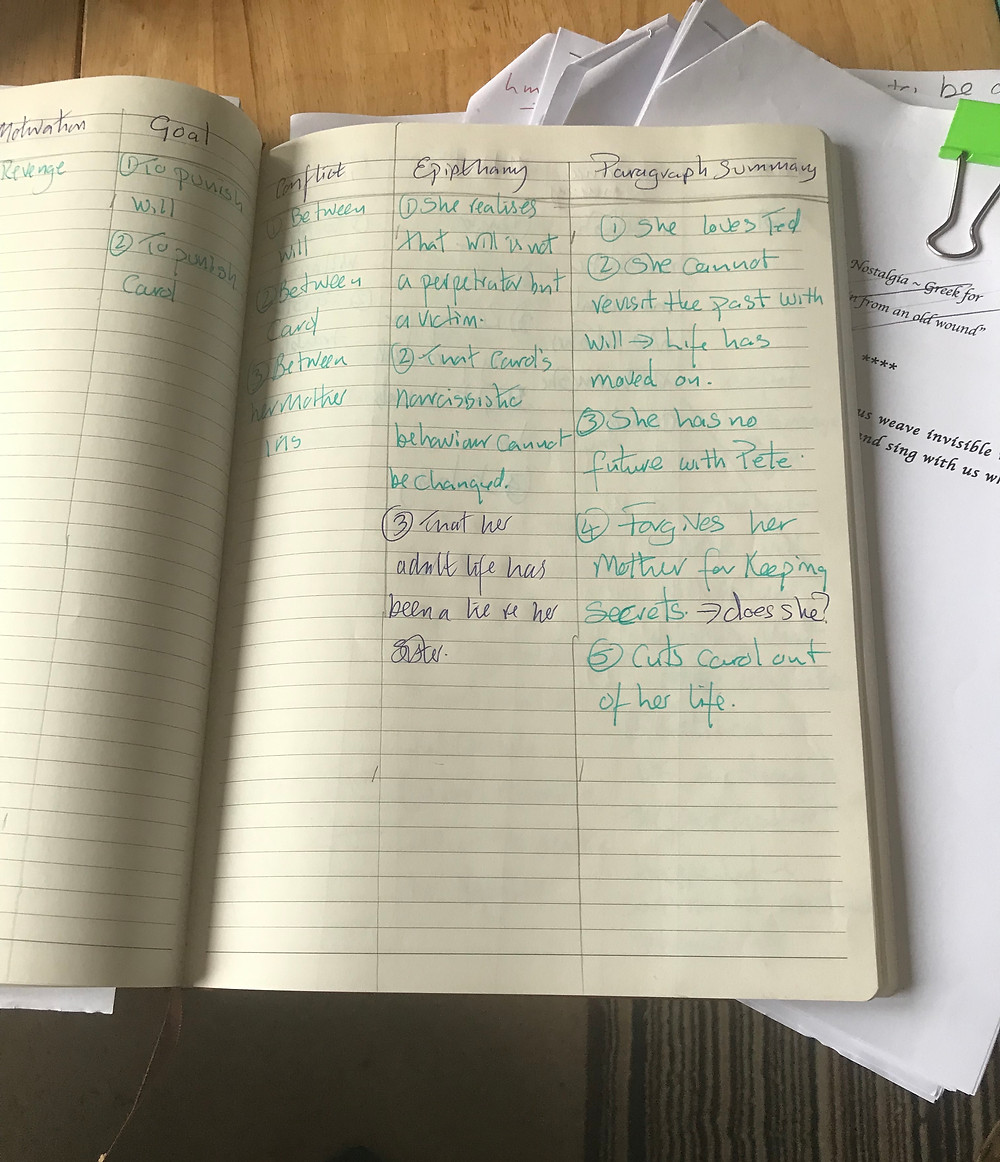 Motivation
Revenge
Goal
① To punish
Will
② To punish
Carol
Conflict
① Between
Will
② Between
Carol
③ Between
her Mother
Iris
Epipthany
① She realises
that Will is not
a perpetrator but
a victim.
② That Carol's
narcissistic
behaviour cannot
be changed.
③ That her
adult life has
been a lie re her
Sister.
Paragraph Summary
① She loves Ted
② She cannot
revisit the past with
Will → Life has
moved on.
③ She has no
future with Pete.
④ Forgives her
Mother for Keeping
Secrets. → does she?
⑤ Cuts Carol out
of her life.
be
Nostalgia ~ Greek for
from an old wound"
****
us weave invisible
and sing with us